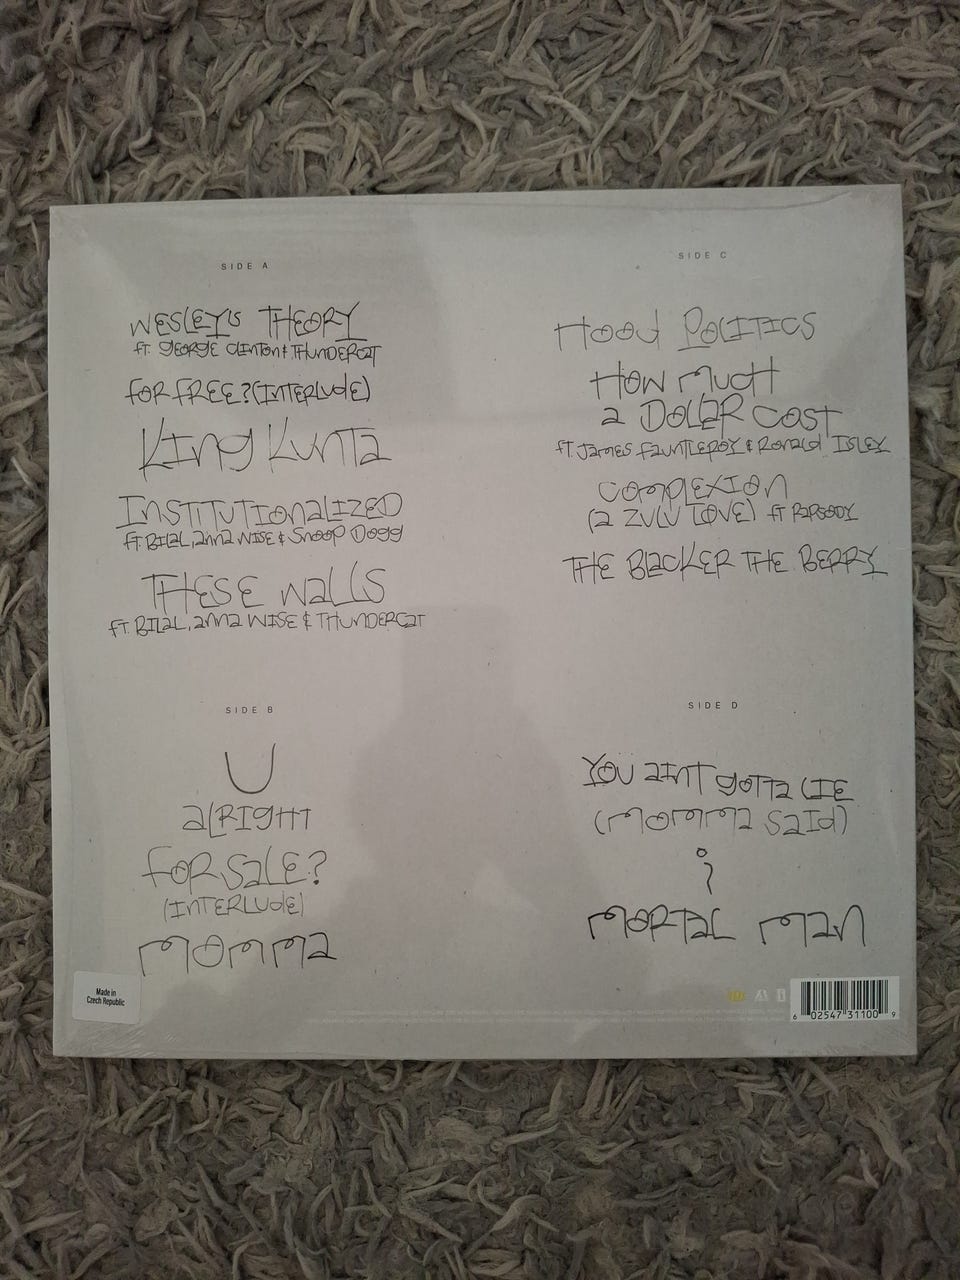 SIDE A
WESLEYS THEORY
ft. GEORGE CLINTON & THUNDERCAT
FOR FREE? (INTERLUDE)
KING KUNTA
INSTITUTIONALIZED
ft. BILAL, ANNA WISE & SNOOP DOGG
THESE WALLS
ft. BILAL, ANNA WISE & THUNDERCAT
SIDE B
U
ALRIGHT
FOR SALE?
(INTERLUDE)
MOMMA
SIDE C
HOOD POLITICS
HOW MUCH
A DOLLAR COST
ft. JAMES FAUNTLEROY & RONALD ISLEY
COMPLEXION
(A ZULU LOVE) ft RAPSODY
THE BLACKER THE BERRY
SIDE D
YOU AINT GOTTA LIE
(MOMMA SAID)
i
MORTAL MAN
Made in
Czech Republic
6 02547 31100 9